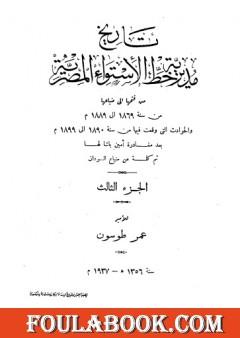 تاريخ
مديرية خط الاستواء المصرية
من فتحها الى ضياعها
من سنة ١٨٦٩ الى ١٨٨٩ م
والحوادث التى وقعت فيها من سنة ١٨٩٠ الى ١٨٩٩ م
بعد مغادرة أمين باشا لها
ثم كلمة عن ضياع السودان
الجزء الثالث
للأمير
عمر طوسون
سنة ١٣٥٦ ه - ١٩٣٧ م
FOULABOOK.COM